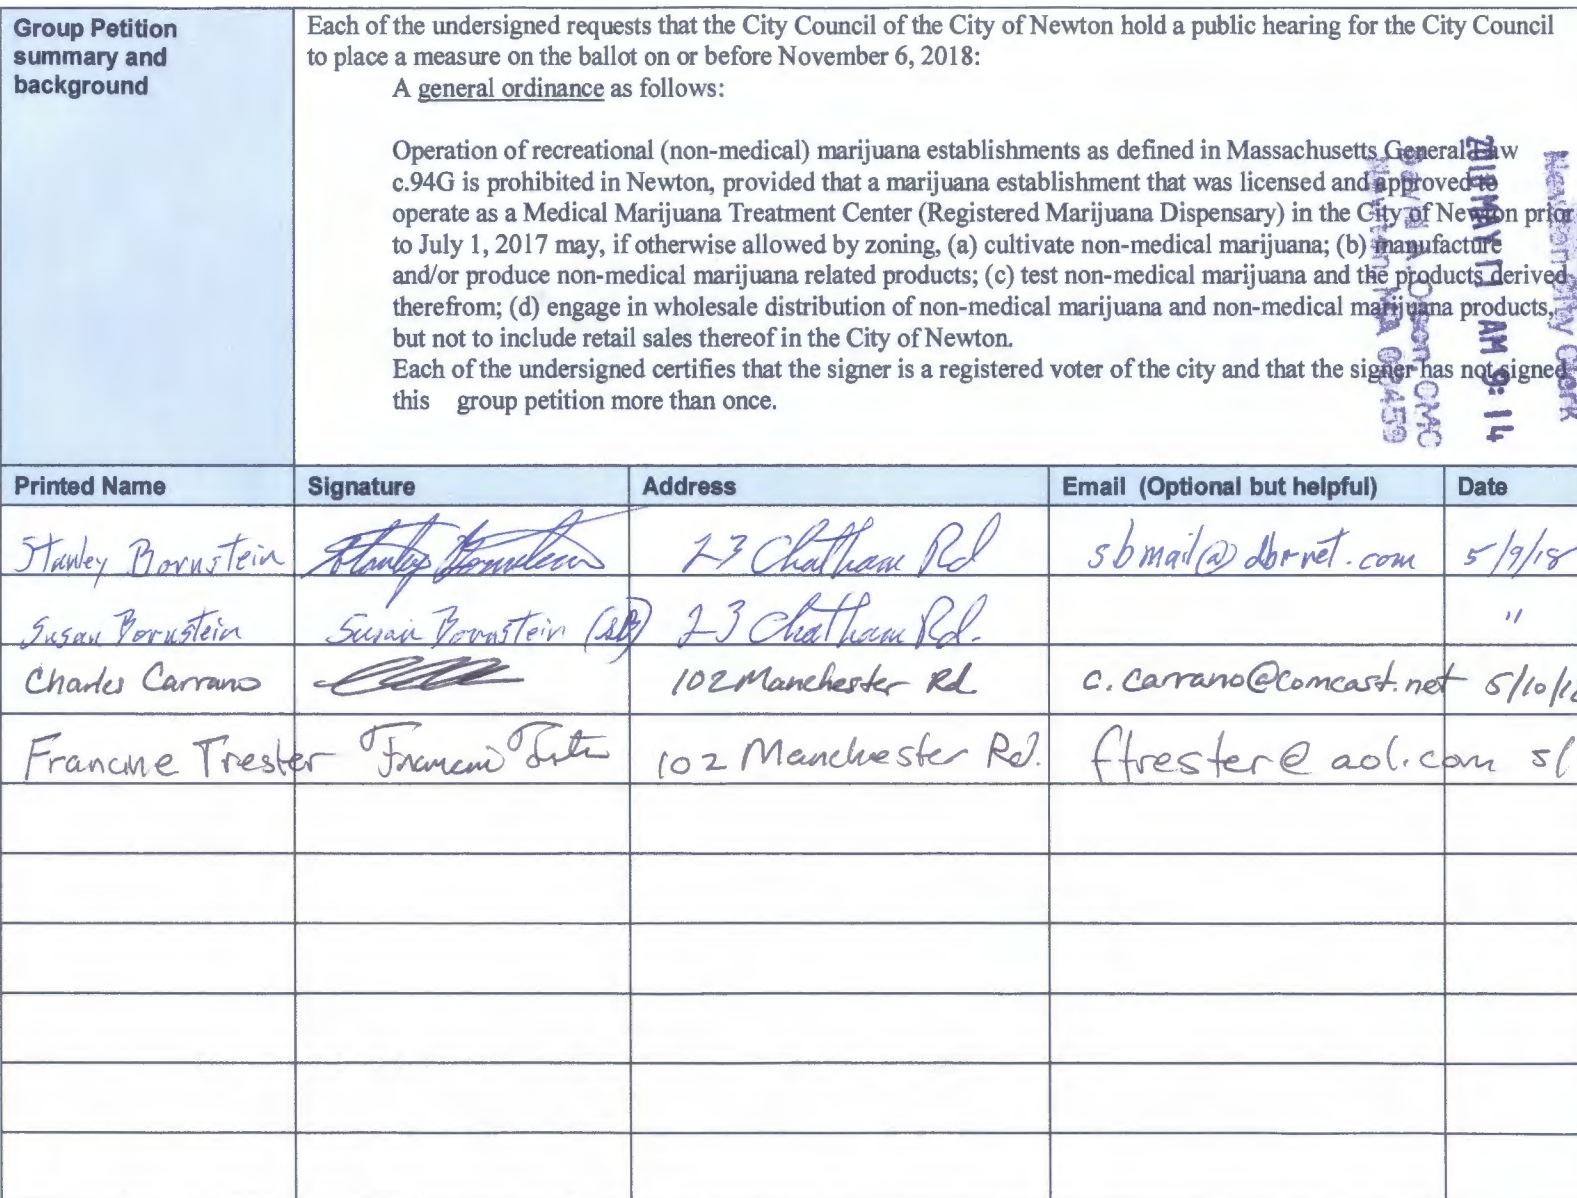 Group Petition summary and background
Each of the undersigned requests that the City Council of the City of Newton hold a public hearing for the City Council
to place a measure on the ballot on or before November 6, 2018:
A general ordinance as follows:
Operation of recreational (non-medical) marijuana establishments as defined in Massachusetts General Law
c.94G is prohibited in Newton, provided that a marijuana establishment that was licensed and approved to
operate as a Medical Marijuana Treatment Center (Registered Marijuana Dispensary) in the City of Newton prior
to July 1, 2017 may, if otherwise allowed by zoning, (a) cultivate non-medical marijuana; (b) manufacture
and/or produce non-medical marijuana related products; (c) test non-medical marijuana and the products derived
therefrom; (d) engage in wholesale distribution of non-medical marijuana and non-medical marijuana products,
but not to include retail sales thereof in the City of Newton.
Each of the undersigned certifies that the signer is a registered voter of the city and that the signer has not signed
this group petition more than once.
Newton City Clerk
2018 MAY 17 AM 9:14
David A. Olson, CMC
Newton, MA 02459
Printed Name Signature Address Email (Optional but helpful) Date
Stanley Bornstein Stanley Bornstein 23 Chatham Rd sbmail@dbrnet.com 5/9/18
Susan Bornstein Susan Bornstein (SB) 23 Chatham Rd. "
Charles Carrano 102 Manchester Rd c.carrano@comcast.net 5/10/18
Francine Trester 102 Manchester Rd. ftrester@aol.com 5/